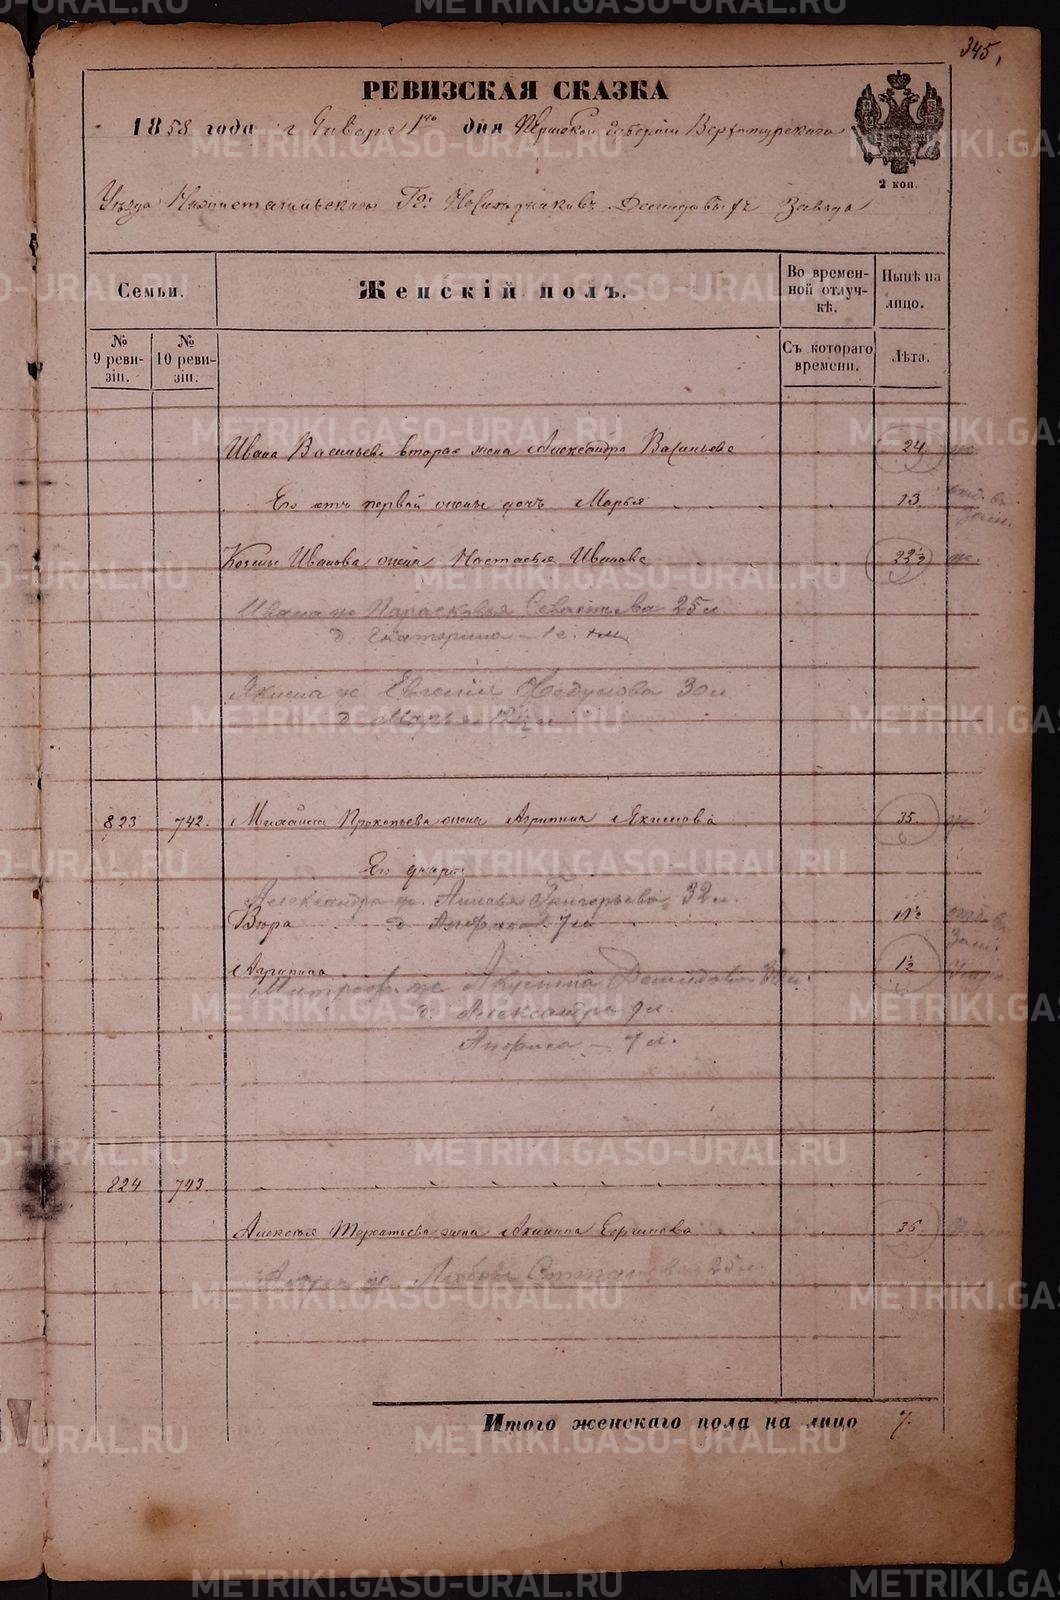 345,
РЕВИЗСКАЯ СКАЗКА
1858 года Января 1го дня Пермской Губернiи Верхотурскаго
Уѣзда Нижнетагильскаго Гг: Наслѣдниковъ Демидовыхъ Завода
2 коп.
Семьи.
Женскій полъ.
Во временной отлучкѣ.
Нынѣ на лицо.
№ 9 ревизіи.
№ 10 ревизіи.
Съ котораго времени.
Лѣта.
Ивана Васильева вторая жена Александра Васильева 24
Его отъ первой жены дочь Марья 13
Козьмы Иванова жена Настасья Иванова 22½
Ивана ж Парасковья 25 л
д Екатерина 1 г.
Якима ж Евгенія 30 л
д Марья 12½ л
823 742. Михайла Прокопьева жена Агрипина Якимова 35.
Его дочери
Александра ж. Анисья Григорьева 32 л.
Вѣра д 7 л
Агрипина 1½
Митроф. ж Акулина Демидова
д. Александра 9 л.
Анфиса — 7 л.
824 743.
Алексѣя Терентьева жена 36
ж. Любовь Степанова 25 л.
Итого женскаго пола на лицо 7.
METRIKI.GASO-URAL.RU